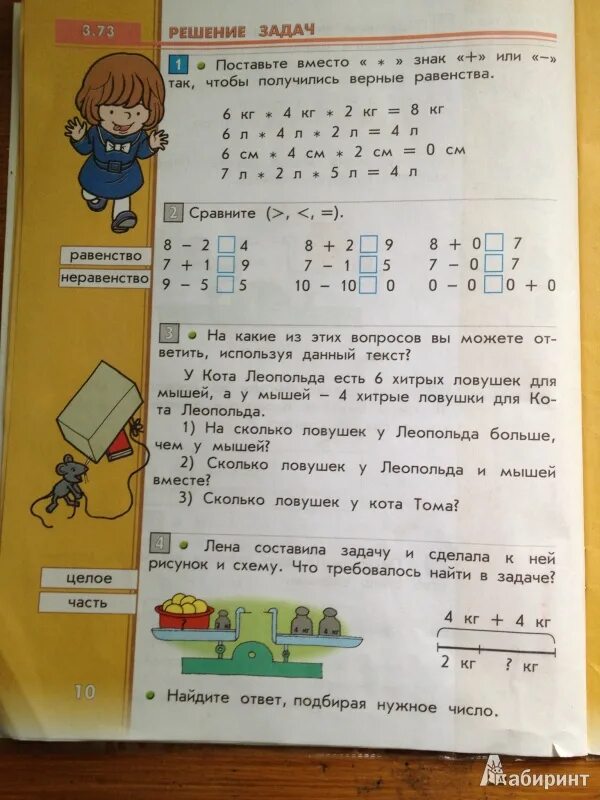 3.73 РЕШЕНИЕ ЗАДАЧ
1 • Поставьте вместо « * » знак «+» или «−»
так, чтобы получились верные равенства.
6 кг * 4 кг * 2 кг = 8 кг
6 л * 4 л * 2 л = 4 л
6 см * 4 см * 2 см = 0 см
7 л * 2 л * 5 л = 4 л
2 Сравните (>, <, =).
8 − 2 □ 4 8 + 2 □ 9 8 + 0 □ 7
7 + 1 □ 9 7 − 1 □ 5 7 − 0 □ 7
9 − 5 □ 5 10 − 10 □ 0 0 − 0 □ 0 + 0
равенство
неравенство
3 • На какие из этих вопросов вы можете от-
ветить, используя данный текст?
У Кота Леопольда есть 6 хитрых ловушек для
мышей, а у мышей – 4 хитрые ловушки для Ко-
та Леопольда.
1) На сколько ловушек у Леопольда больше,
чем у мышей?
2) Сколько ловушек у Леопольда и мышей
вместе?
3) Сколько ловушек у кота Тома?
4 • Лена составила задачу и сделала к ней
рисунок и схему. Что требовалось найти в задаче?
целое
часть
?
4 кг + 4 кг
2 кг ? кг
• Найдите ответ, подбирая нужное число.
10
Лабиринт